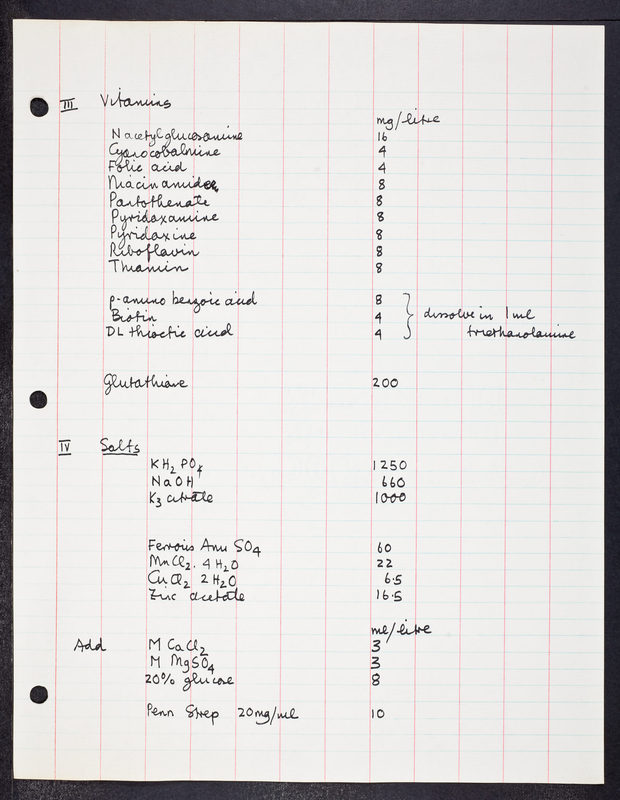 III Vitamins
mg/litre
N acetylglucosamine 16
Cyanocobalmine 4
Folic acid 4
Niacinamide 8
Pantothenate 8
Pyridoxamine 8
Pyridoxine 8
Riboflavin 8
Thiamin 8
p-amino benzoic acid 8
Biotin 4 } dissolve in 1 ml
DL thioctic acid 4 triethanolamine
Glutathione 200
IV Salts
KH2PO4 1250
NaOH 660
K3 citrate 1000
Ferrous Amm SO4 60
MnCl2. 4H2O 22
CuCl2 2H2O 6.5
Zinc acetate 16.5
ml/litre
Add M CaCl2 3
M MgSO4 3
20% glucose 8
Penn Strep 20mg/ml 10